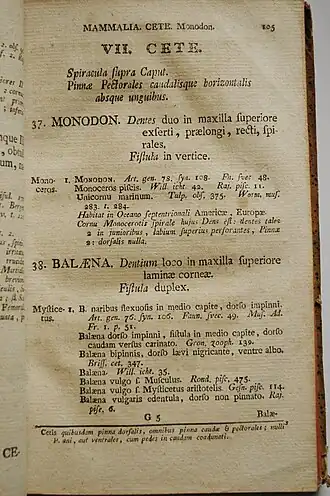 MAMMALIA. CETE. Monodon. 105
VII. CETE.
Spiracula ſupra Caput.
Pinnæ Pectorales caudalisque horizontalis
absque unguibus.
37. MONODON. Dentes duo in maxilla superiore
exſerti, prælongi, recti, ſpi-
rales.
Fiſtula in vertice.
Mono- 1. MONODON. Art. gen. 78. ſyn. 108. Fn. ſvec. 48.
ceros. Monoceros piſcis. Will. icht. 42. Raj. piſc. 11.
Unicornu marinum. Tulp. obſ. 375. Worm. muſ.
283. t. 284.
Habitat in Oceano septentrionali Americæ, Europæ.
Cornu Monocerotis ſpirale hujus Dens eſt: dentes tales
2 in junioribus, labium superius perforantes, Pinnæ
2: dorſalis nulla.
38. BALÆNA. Dentium loco in maxilla superiore
laminæ corneæ.
Fiſtula duplex.
Myſtice- 1. B. naribus flexuoſis in medio capite, dorſo impinni.
tus. Art. gen. 76. ſyn. 106. Faun. ſvec. 49. Muſ. Ad.
Fr. 1. p. 51.
Balæna dorſo impinni, fiſtula in medio capite, dorſo
caudam versus carinato. Gron. zooph. 139.
Balæna bipinnis, dorſo lævi nigricante, ventre albo.
Briſſ. cet. 347.
Balæna. Will. icht. 35.
Balæna vulgo ſ. Musculus. Rond. piſc. 475.
Balæna vulgo ſ. Myſticetus ariſtotelis. Geſn. piſc. 114.
Balæna vulgaris edentula, dorſo non pinnato. Raj.
piſc. 6.
G 5 Balæ-
Cetis quibusdam pinna dorſalis, omnibus pinna caudæ & pectorales; nulli
P. ani, aut ventrales, cum pedes in caudam coadunati.
CE-